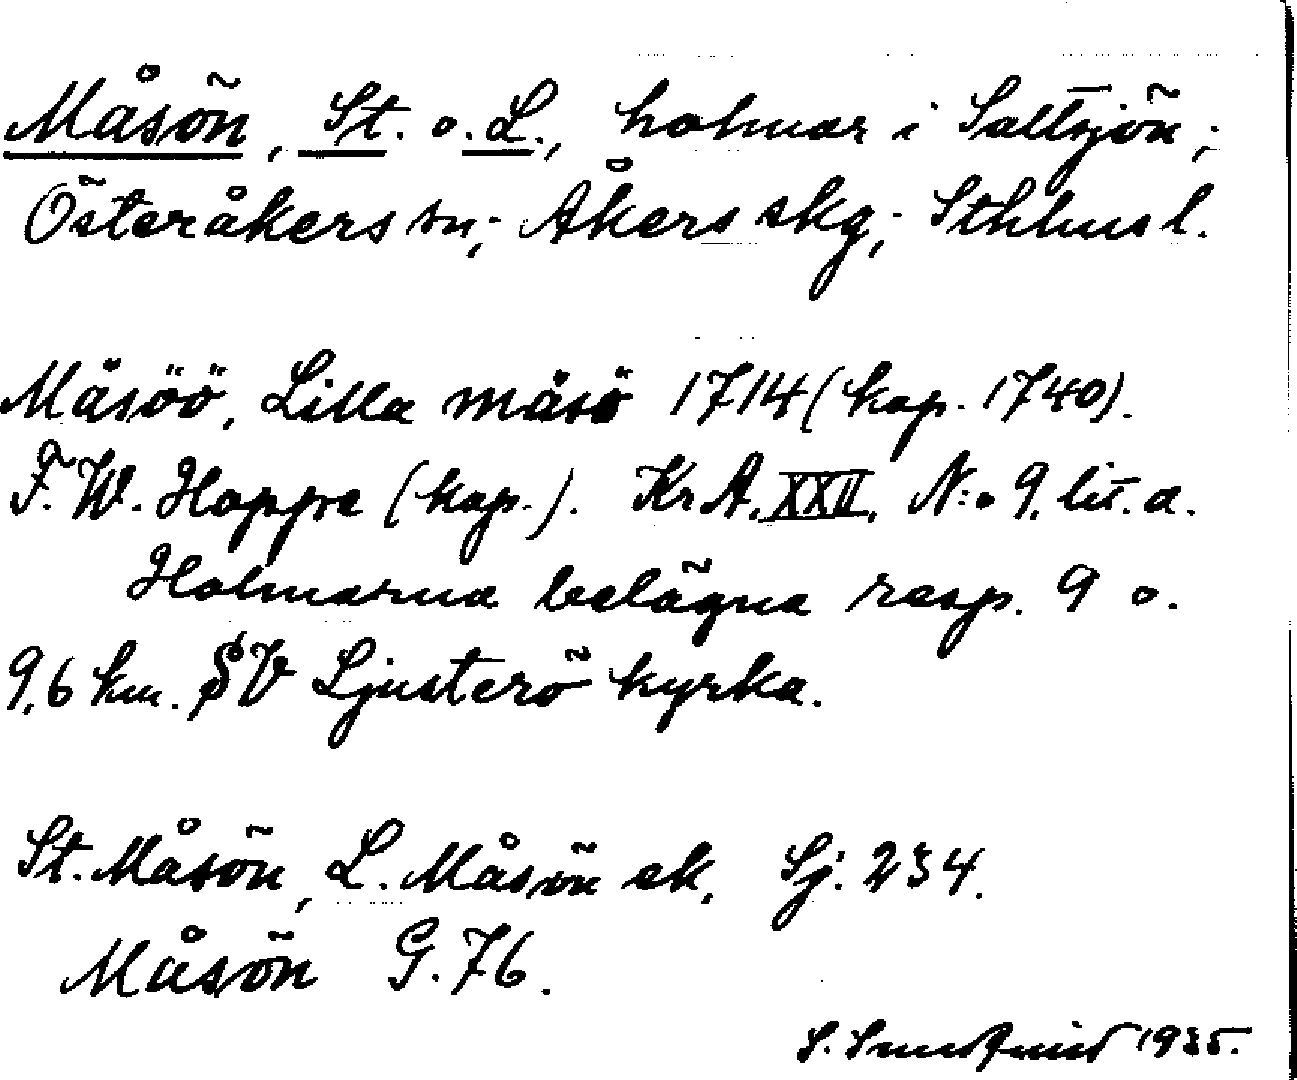 Måsön, St. o. L., holmar i Saltsjön;
Österåkers sn; Åkers skg; Sthlms l.
Måsöö, Lilla måsö 1714 (kop. 1740).
F. W. Hoppe (kop.). Kr A. XXII, N:o 9, lit. a.
Holmarna belägna resp. 9 o.
9,6 km. SV Ljusterö kyrka.
St. Måsön, L. Måsön ek. Sj. 234.
Måsön G. 76.
S. 1935.